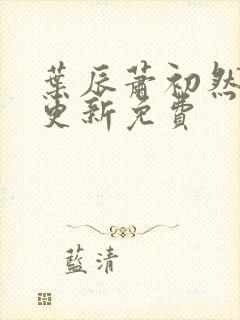 葉辰蕭初然
更新免費
藍清